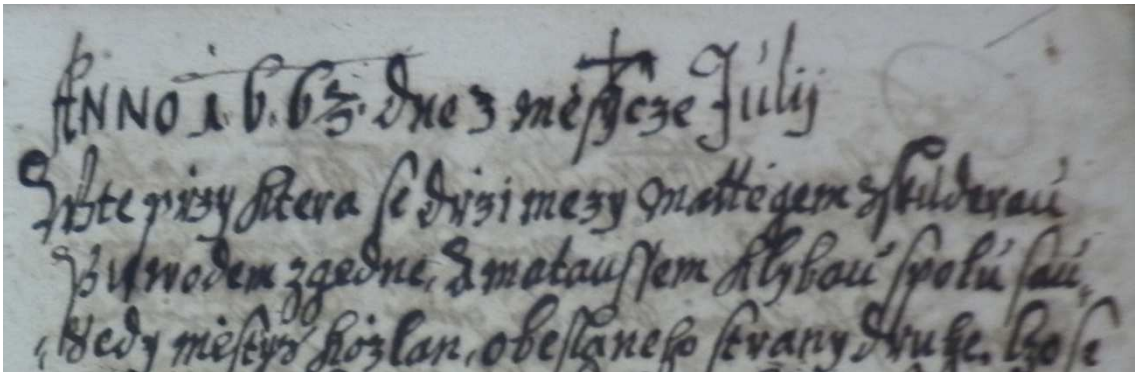 ANNO 1.6.63. dne 3 mesycze Julij
W te przy ktera se drzi mezy Mattegem Sskuderau
Puwodem z gedne, a Mataussem Hlybau spolu sau,
sedy mestys Kozlan, obeslaneho strany druhe. kzo se